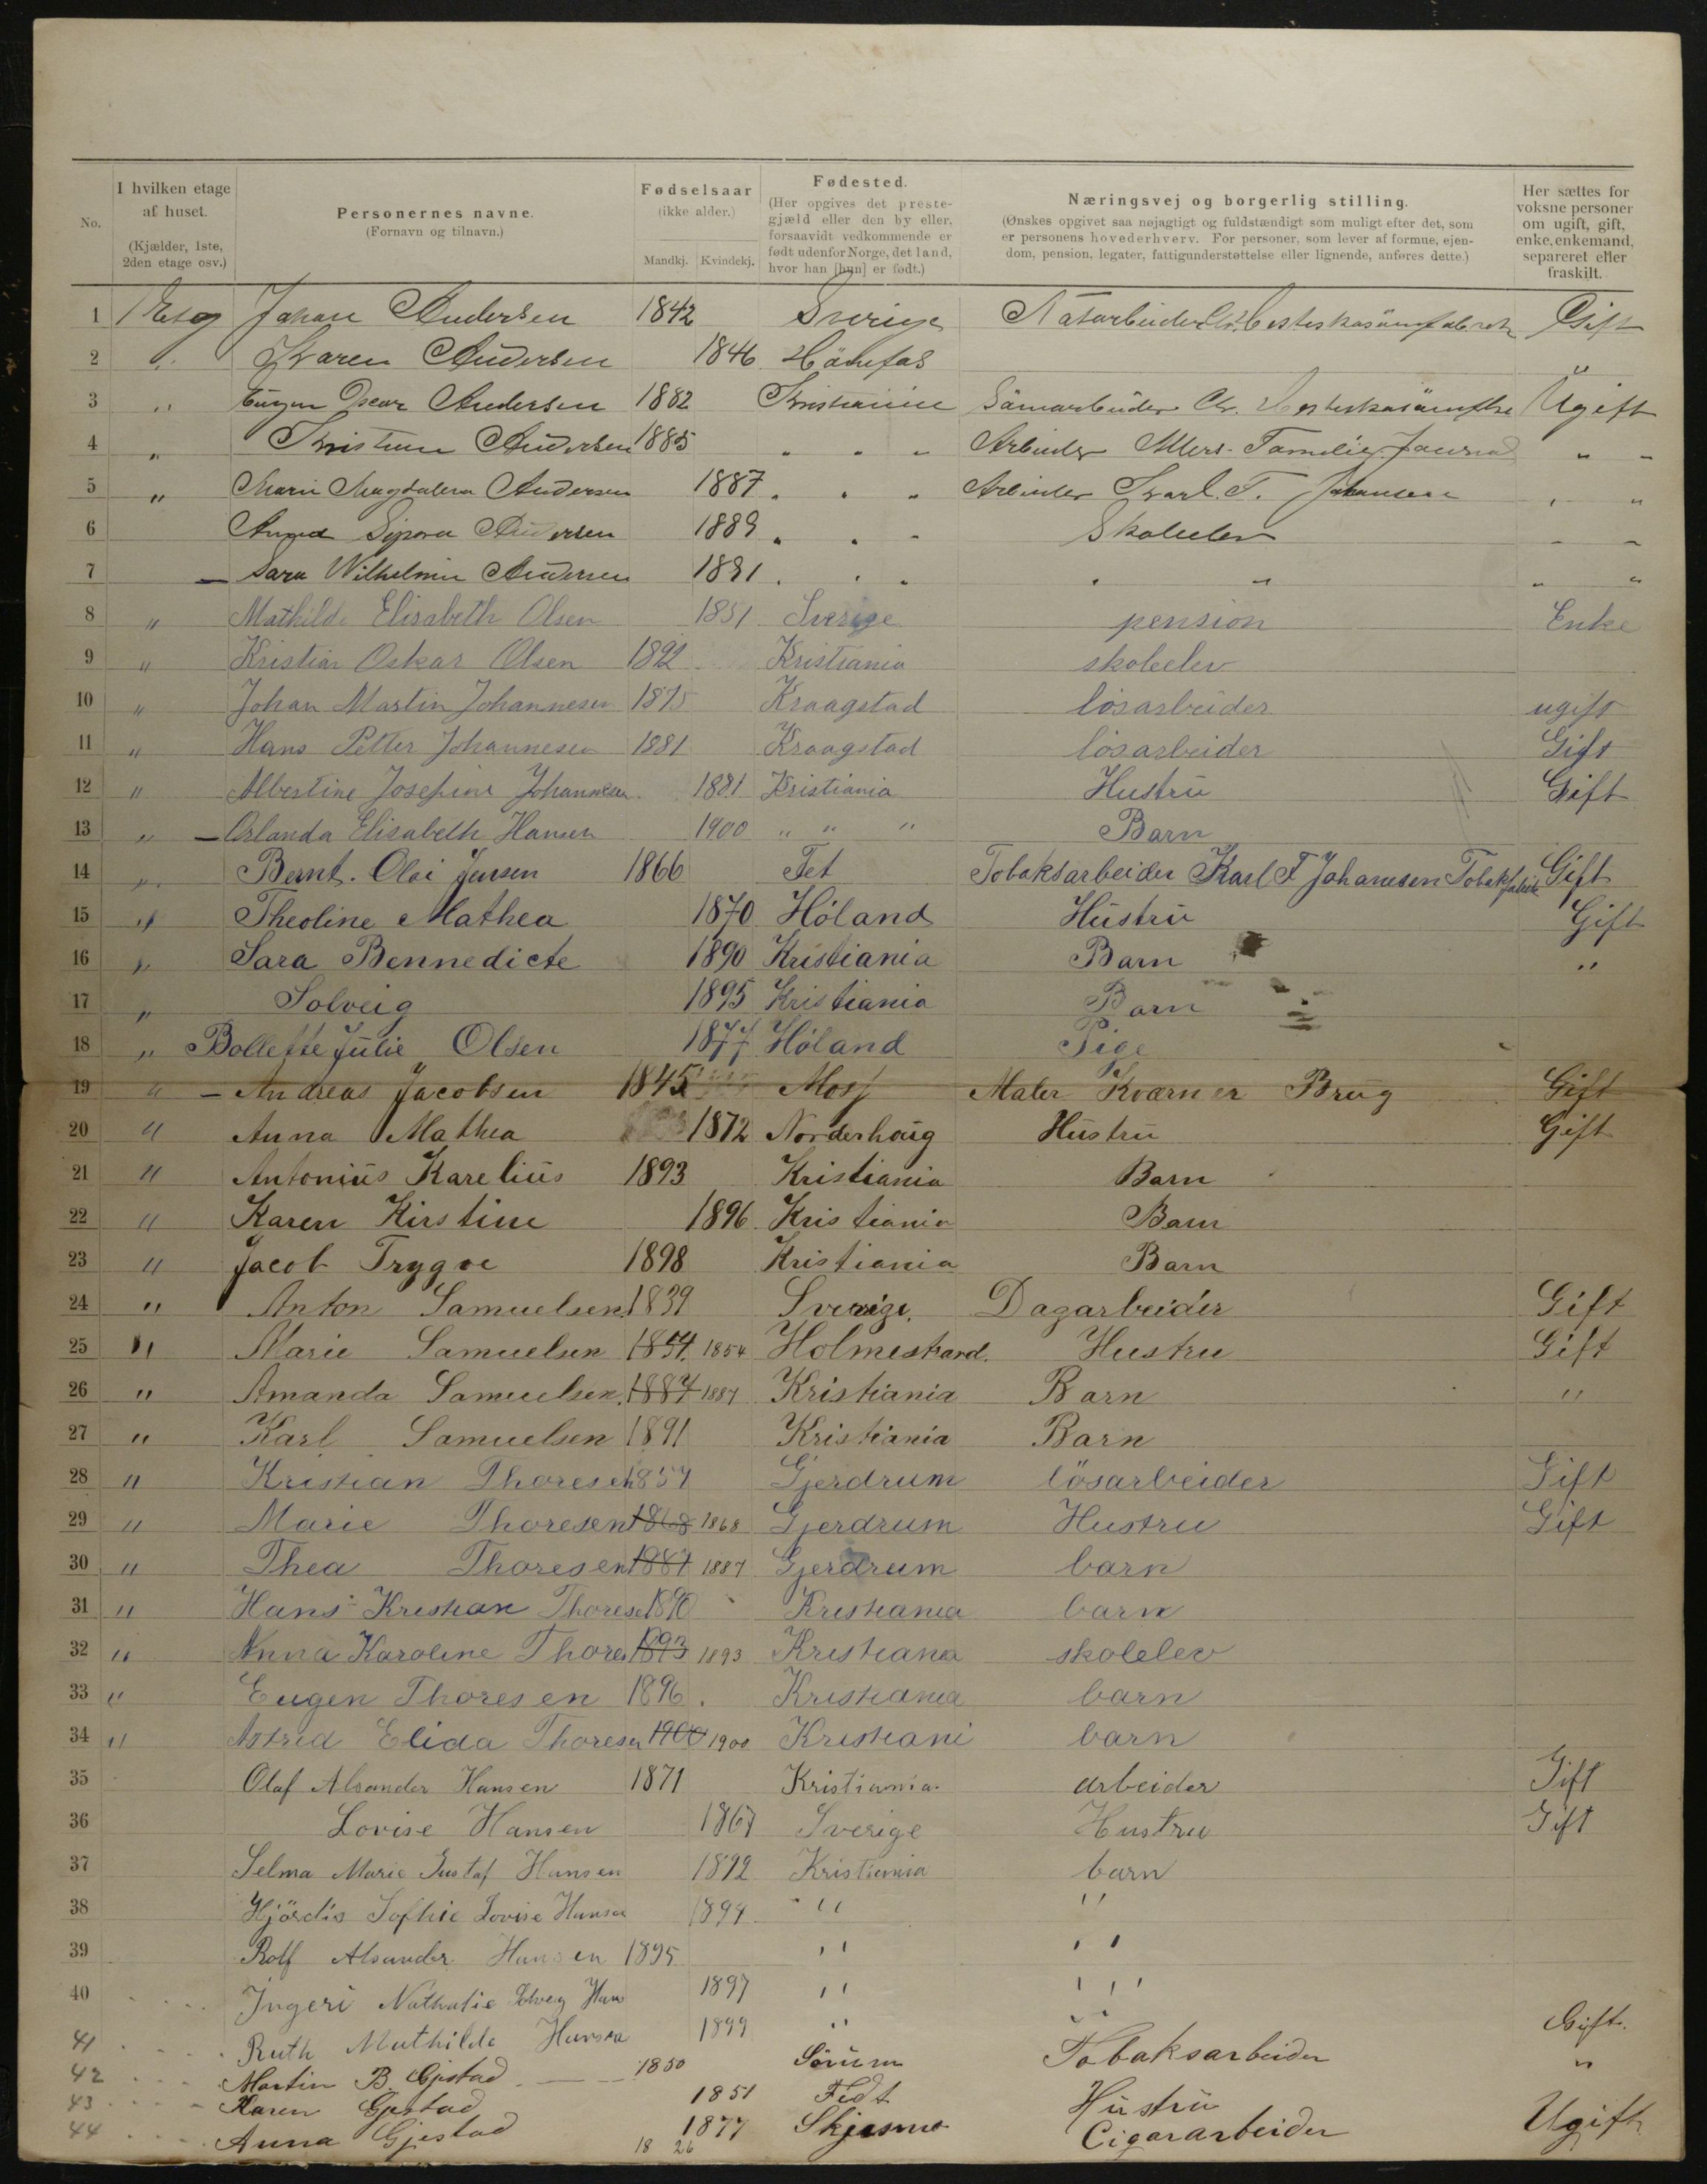 No.
I hvilken etage af huset.
(Kjælder, 1ste, 2den etage osv.)
Personernes navne.
(Fornavn og tilnavn.)
Fødselsaar
(ikke alder.)
Mandkj. Kvindekj.
Fødested.
(Her opgives det prestegjæld eller den by eller, forsaavidt vedkommende er født udenfor Norge, det land, hvor han [hun] er født.)
Næringsvej og borgerlig stilling.
(Ønskes opgivet saa nøjagtigt og fuldstændigt som muligt efter det, som er personens hovederhverv. For personer, som lever af formue, ejendom, pension, legater, fattigunderstøttelse eller lignende, anføres dette.)
Her sættes for voksne personer om ugift, gift, enke, enkemand, separeret eller fraskilt.
1 1 Etag Johan Andersen 1842 Sverige Gift
2 " Karen Andersen 1846 Hönefos
3 " Eugen Oscar Andersen 1882 Kristiania Ugift
4 " Andersen 1885 " " " Arbeider Allers Familie Journal " "
5 " Marie Magdalena Andersen 1887 " " " Arbeider Karl. F. Johansen " "
6 Andersen 1889 " " " Skoleelev " "
7 — Sara Wilhelmine Andersen 1891 " " " " " " "
8 " Mathilde Elisabeth Olsen 1851 Sverige pension Enke
9 " Kristian Oskar Olsen 1892 Kristiania skoleelev
10 " Johan Martin Johannesen 1875 Kraagstad lösarbeider ugift
11 " Hans Petter Johannesen 1881 Kraagstad lösarbeider Gift
12 " Albertine Josefine Johannesen 1881 Kristiania Hustru Gift
13 " — Orlanda Elisabeth Hansen 1900 " " " Barn
14 " Bernt. Olai Jensen 1866 Fet Tobaksarbeider Karl F Johannsen Tobakfabrik Gift
15 " Theoline Mathea 1870 Höland Hustru Gift
16 " Sara Bennedicte 1890 Kristiania Barn "
17 " Solveig 1895 Kristiania Barn
18 " Bollette Julie Olsen 1877 Höland Pige
19 " — Andreas Jacobsen 1845 Moss Maler Kværner Brug Gift
20 " Anna Mathea 1872 Norderhoug Hustru Gift
21 " Antonius Karelius 1893 Kristiania Barn
22 " Karen Kirstine 1896 Kristiania Barn
23 " Jacob Trygve 1898 Kristiania Barn
24 " Anton Samuelsen 1839 Sverige. Dagarbeider Gift
25 " Marie Samuelsen 1854. 1854 Holmestrand. Hustru Gift
26 " Amanda Samuelsen. 1887 1887 Kristiania Barn "
27 " Karl Samuelsen 1891 Kristiania Barn
28 " Kristian Thoresen 1857 Gjerdrum lösarbeider Gift
29 " Marie Thoresen 1868 1868 Gjerdrum Hustru Gift
30 " Thea Thoresen 1887 1887 Gjerdrum barn
31 " Hans Kristian Thorese 1890 Kristiania barn
32 " Anna Karoline Thores 1893 1893 Kristiana skolelev
33 " Eugen Thoresen 1896. Kristiania barn
34 " Astrid Elida Thoresen 1900 1900 Kristiani barn
35 Olaf Alsander Hansen 1871 Kristiania. arbeider Gift
36 Lovise Hansen 1867 Sverige Hustru Gift
37 Selma Marie Gustaf Hansen 1892 Kristiania barn
38 Hjördis Sofhie Lovise Hansen 1894 " "
39 Rolf Alsander Hansen 1895 " "
40 Ingeri Nathalie Solveig Hans 1897 " "
41 Ruth Mathilde Hansen 1899 " "
42 Martin B. Gjestad 1850 Sörum Tobaksarbeider Gift.
43 Karen Gjestad 1851 Fedt Hustru "
44 Anna Gjestad 1877 Skjesmo Cigararbeider Ugift
18 26